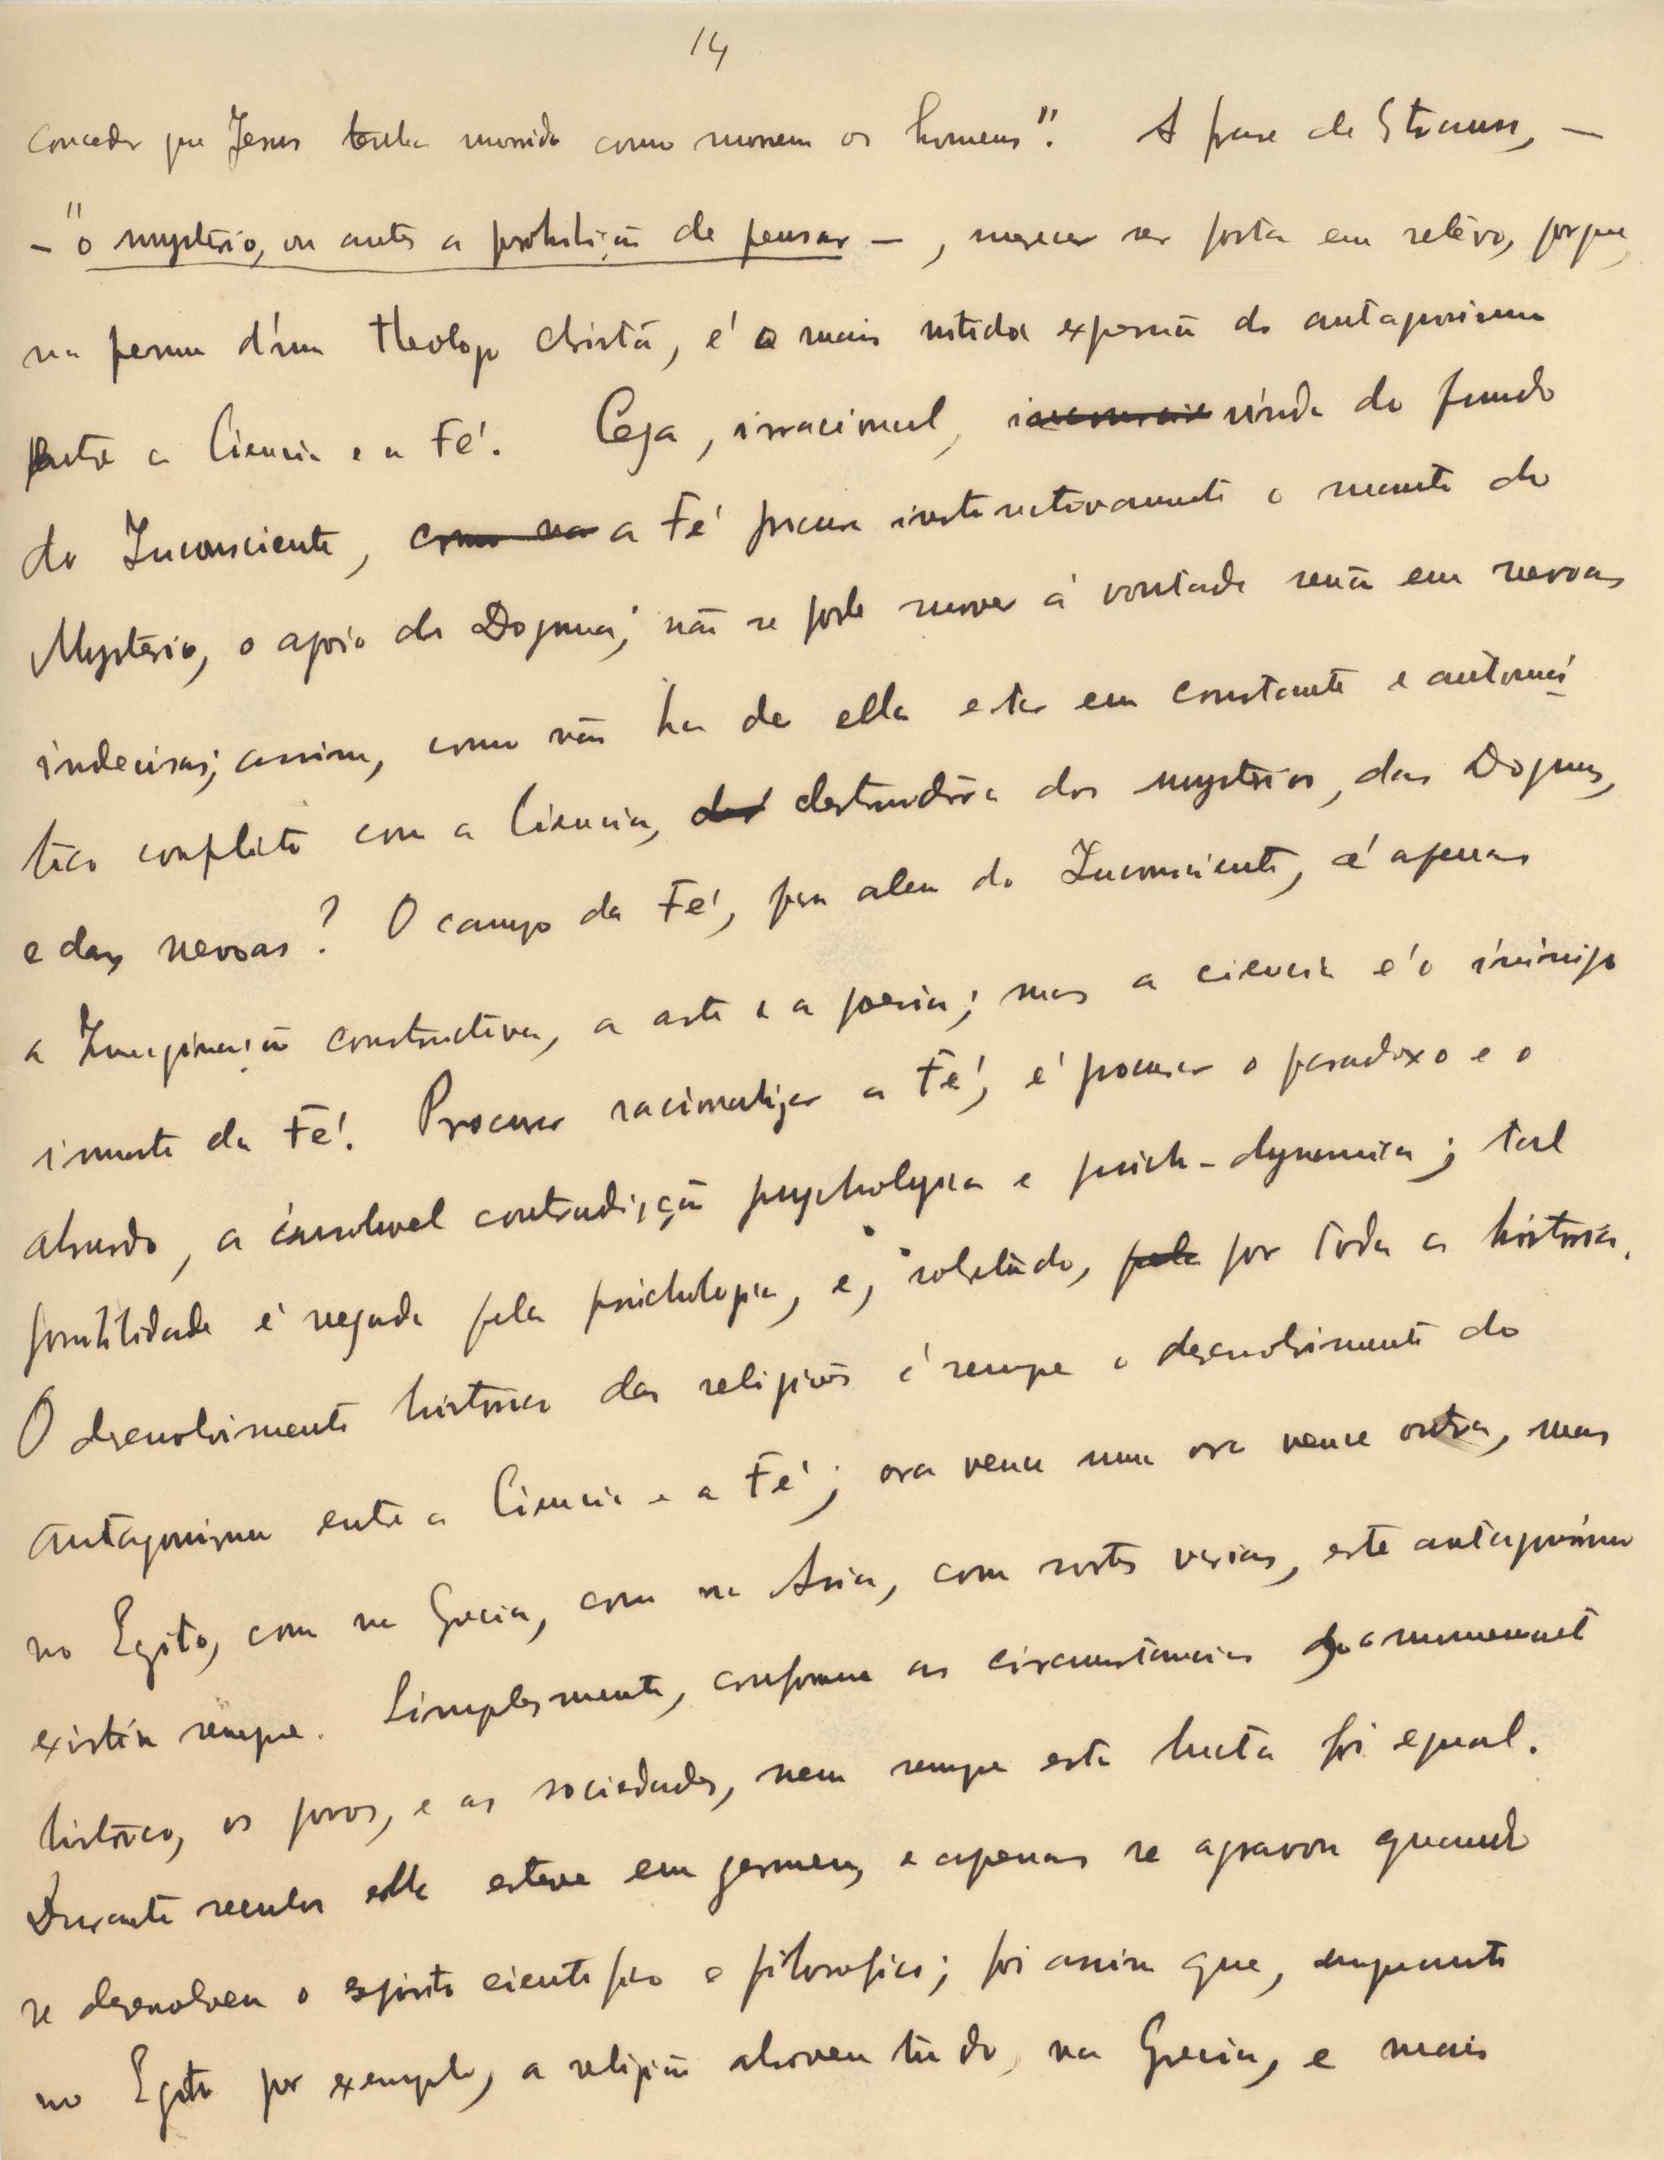 14
conceder que Jesus tenha morrido como morrem os homens". A frase de Strauss, —
— "o mysterio, ou antes a prohibição de pensar — , merece ser posta em relêvo, porque,
na penna d'um theologo christão, é a mais nitida expressão do antagonismo
entre a Ciencia e a Fé. Cega, irracional, vinda do fundo
do Inconsciente, como na a Fé procura instinctivamente o manto do
Mysterio, o apoio do Dogma; não se pode mover á vontade senão em nevoas
indecisas; assim, como não ha de ella estar em constante e automá
tico conflito com a Ciencia, des destruidôra dos mysterios, dos Dogmas,
e das nevoas? O campo da Fé, para alem do Inconsciente, é apenas
a Imaginação constructiva, a arte e a poesia; mas a ciencia é o inimigo
innato da Fé. Procurar racionalizar a Fé, é procurar o paradoxo e o
absurdo, a insoluvel contradicção psychologica e psich-dynamica; tal
possibilidade é negada pela psichologia, e, sobretudo, pela por toda a história.
O desenvolvimento historico das religiões é sempre o desenvolvimento do
antagonismo entre a Ciencia e a Fé; ora vence uma ora vence outra, mas
no Egito, como na Grecia, como na Asia, com sortes varias, este antagonismo
existiu sempre. Simplesmente, conforme as circumstancias do momento
historico, os povos, e as sociedades, nem sempre esta lucta foi egual.
Durante seculos ella esteve em germen, e apenas se agravou quando
se desenvolveu o espirito cientifico e filosofico; foi assim que, emquanto
no Egito por exemplo, a religião absorveu tudo, na Grecia, e mais